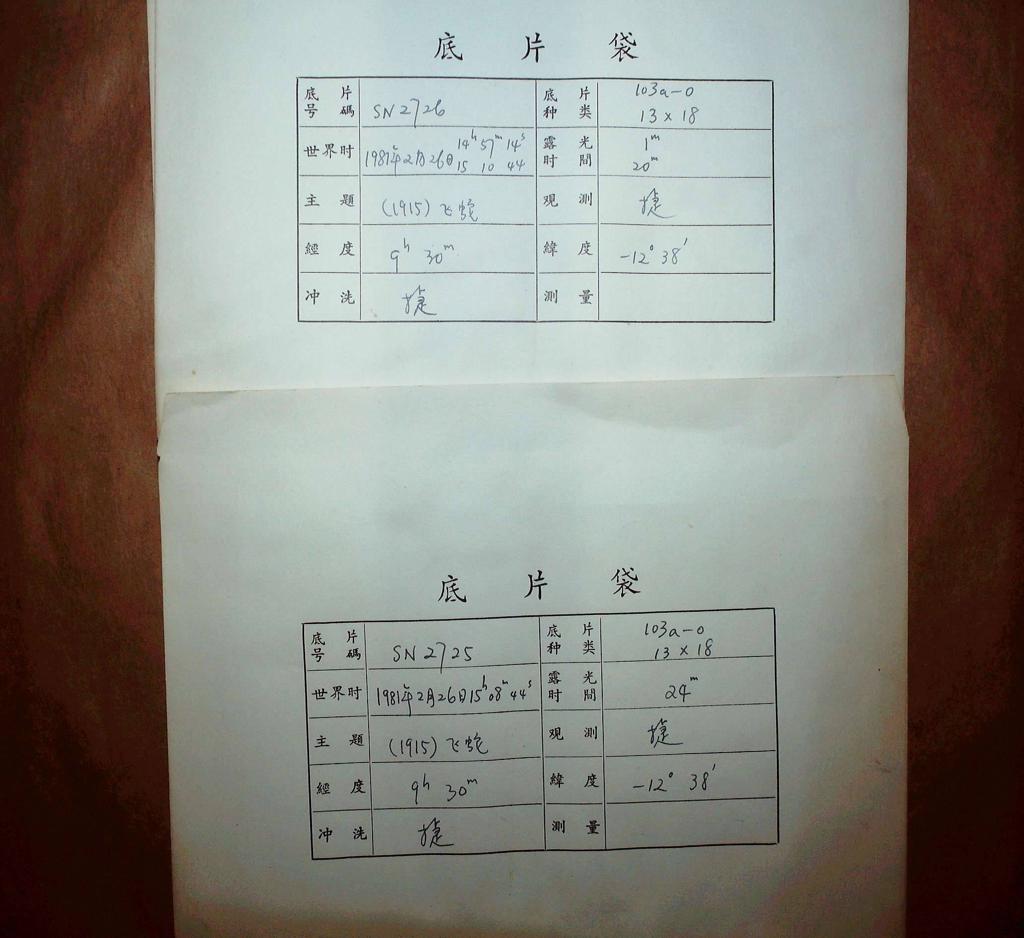 底 片 袋
底 片
号 碼
SN2726
底 片
种 类
103a-0
13×18
世界时
1981年2月26日 14ʰ 57ᵐ 14ˢ
15 10 44
露 光
时 間
1ᵐ
20ᵐ
主 題
(1915) 飞蛇
观 測
捷
經 度
9ʰ 30ᵐ
緯 度
-12° 38′
冲 洗
捷
測 量
底 片 袋
底 片
号 碼
SN2725
底 片
种 类
103a-0
13×18
世界时
1981年2月26日15ʰ08ᵐ44ˢ
露 光
时 間
24ᵐ
主 題
(1915) 飞蛇
观 測
捷
經 度
9ʰ 30ᵐ
緯 度
-12° 38′
冲 洗
捷
測 量